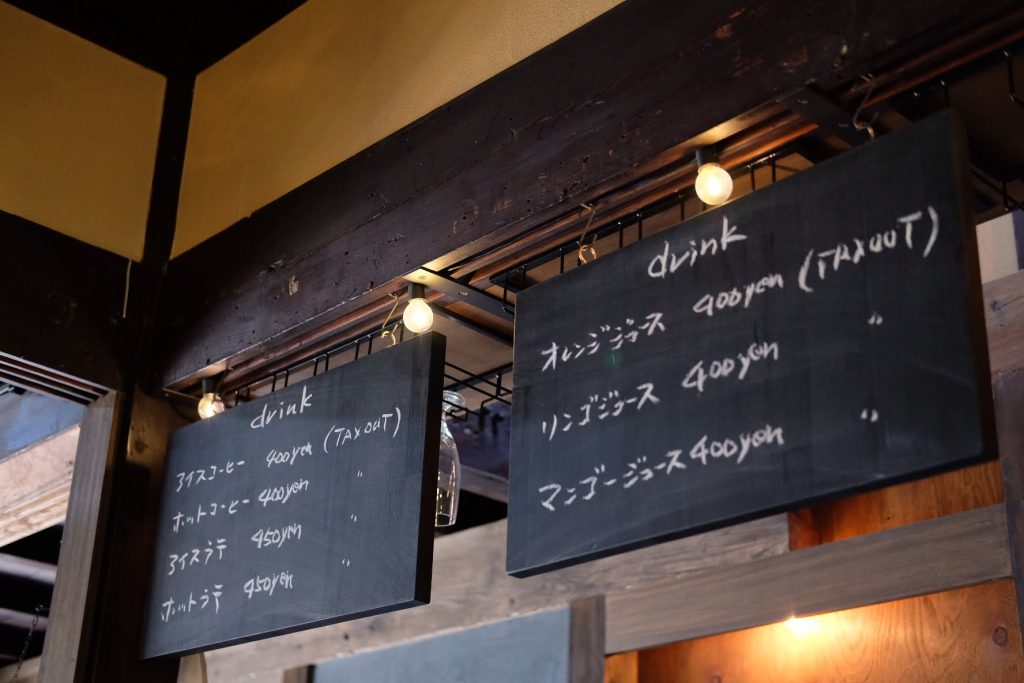 drink
アイスコーヒー 400yen (TAXOUT)
ホットコーヒー 400yen 〃
アイスラテ 450yen 〃
ホットラテ 450yen 〃
drink
オレンジジュース 400yen (TAXOUT)
リンゴジュース 400yen 〃
マンゴージュース 400yen 〃